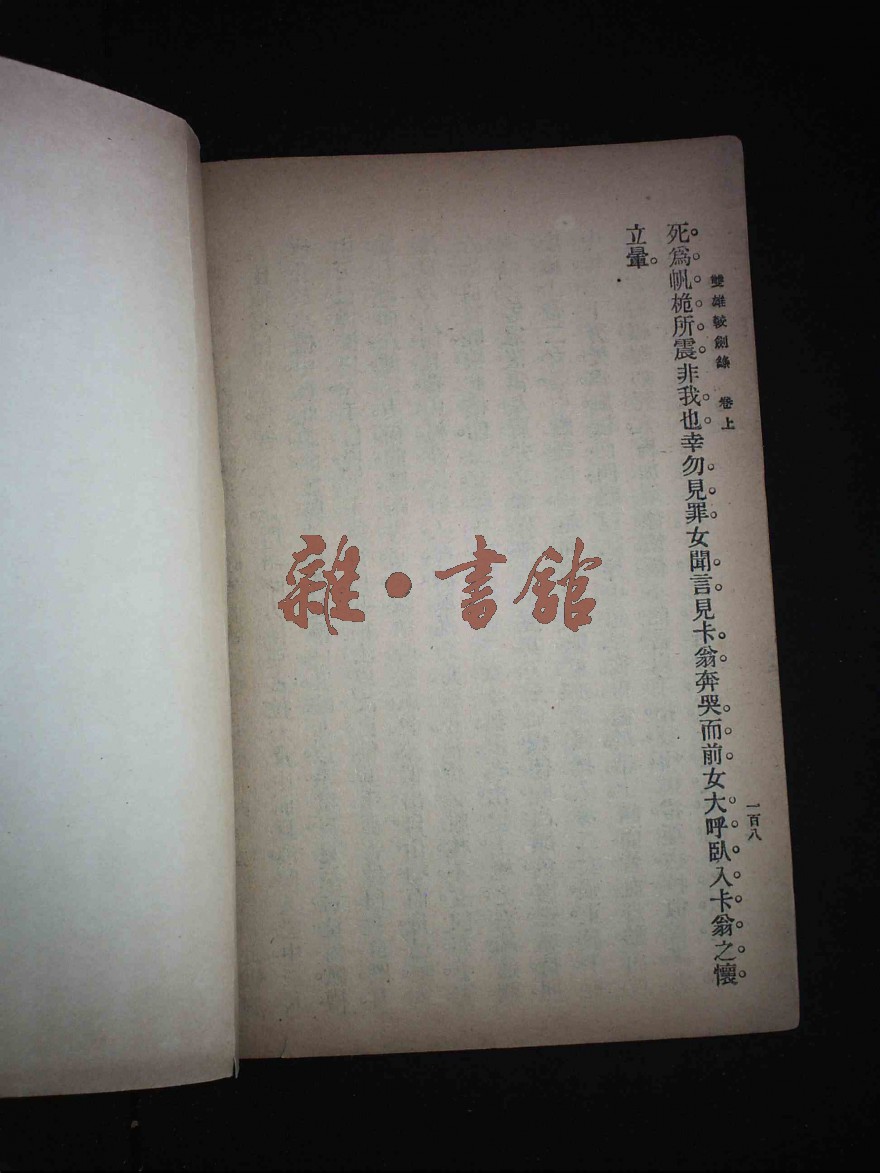 雙雄較劍錄 卷上
一百八
死爲帆桅所震非我也幸勿見罪女聞言見卡翁奔哭而前女大呼臥入卡翁之懷
立暈。
雜·書館